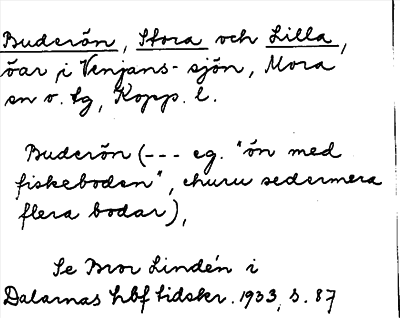 Buderön, Stora och Lilla,
öar i Venjans-sjön, Mora
sn o. tg, Kopp. l.
Buderön (--- eg. "ön med
fiskeboden", churu sedermera
flera bodar),
Se Bror Lindén i
Dalarnas hbf tidskr. 1933, s. 87